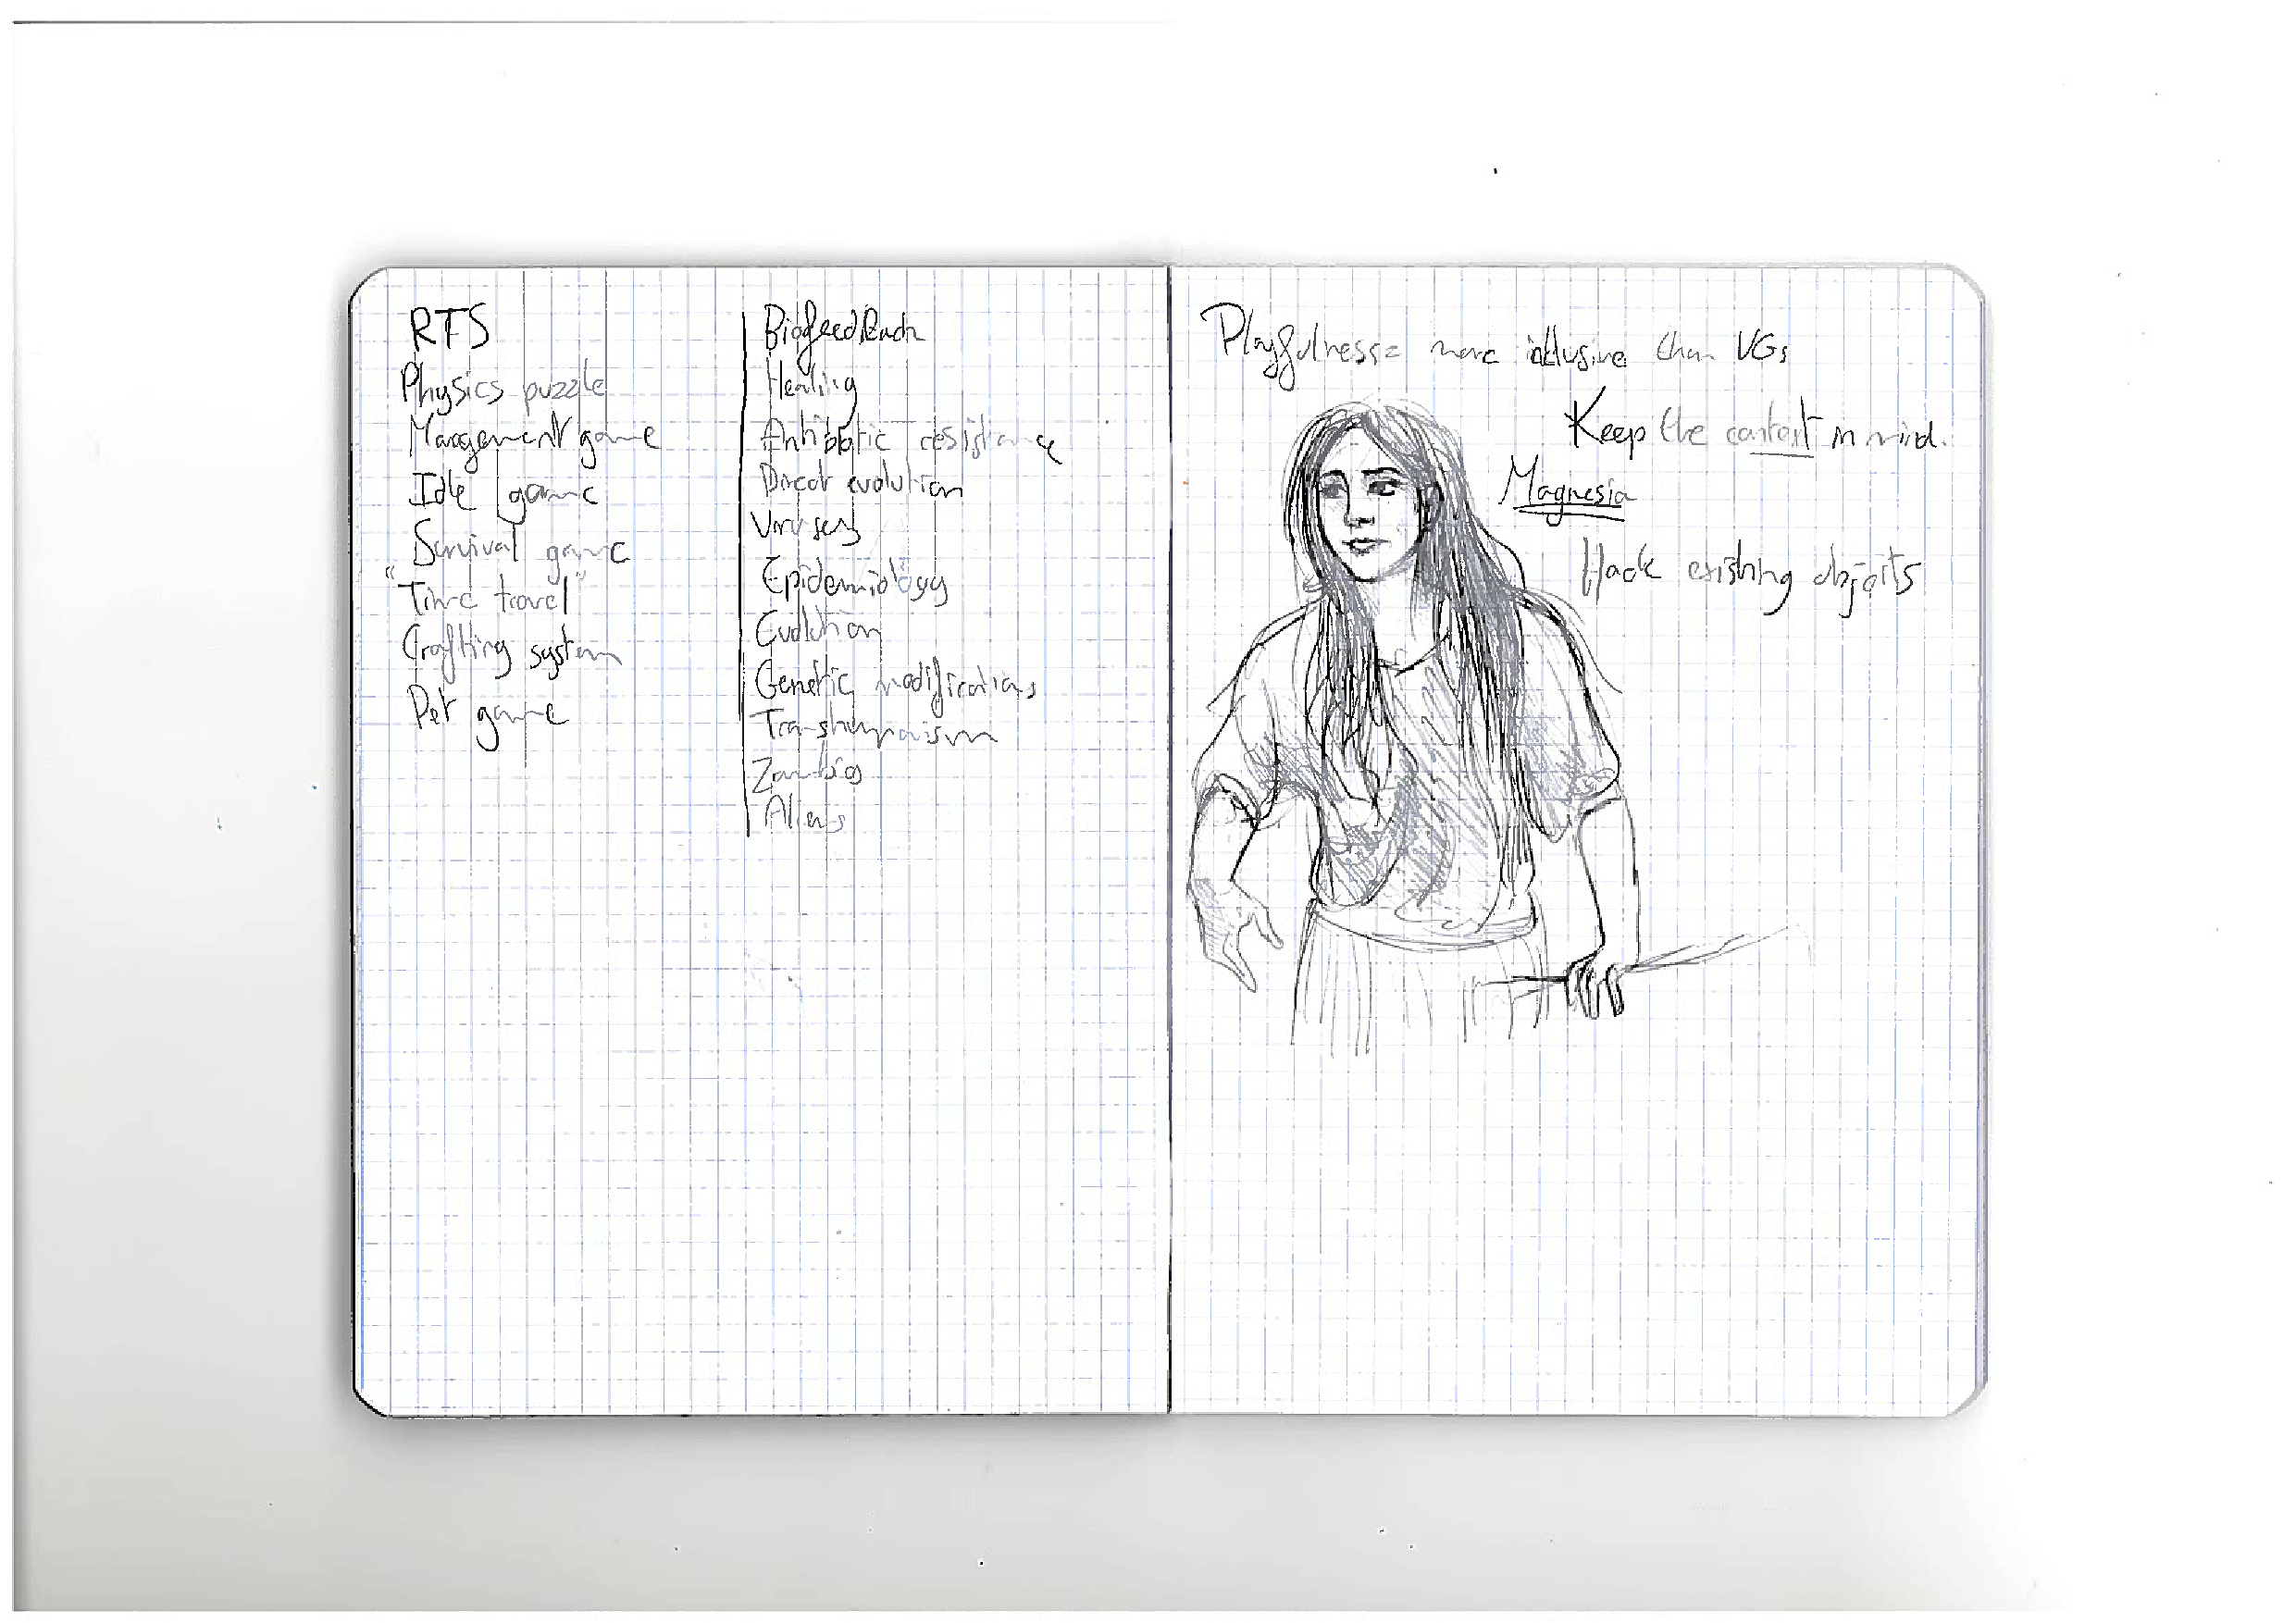 RTS
Physics puzzle
Management game
Idle game
Survival game
"Time travel"
Crafting system
Pet game
Biofeedback
Healing
Antibiotic resistance
Direct evolution
Viruses
Epidemiology
Evolution
Genetic modifications
Transhumanism
Zombies
Aliens
Playfulness= more inclusive than VGs
Keep the context in mind.
Magnesia
Hack existing objects